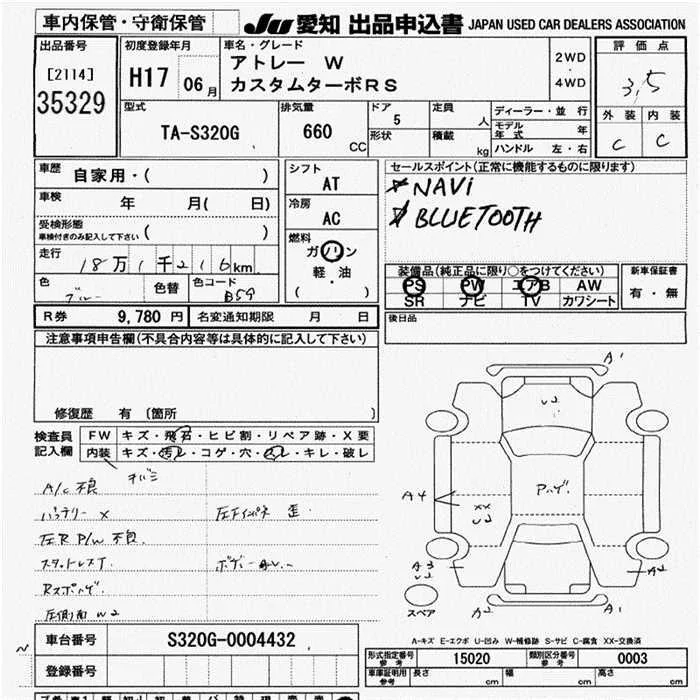 車内保管・守衛保管
JU 愛知 出品申込書 JAPAN USED CAR DEALERS ASSOCIATION
出品番号
[2114]
35329
初度登録年月
H17 06月
車名・グレード
アトレー W
カスタムターボRS
2WD
・
4WD
評価点
3.5
外装 内装
C C
型式
TA-S320G
排気量
660 CC
ドア
5
形状
定員
人
積載
kg
ディーラー・並行
モデル年式 年
ハンドル 左・右
車歴 自家用・( )
車検 年 月( 日)
受検形態
車検付きのみ記入して下さい ( )
走行 18万1千216km
色 ブルー 色替 色コード B59
シフト
AT
冷房
AC
燃料
ガソリン
軽・油
( )
セールスポイント(正常に機能するものに限ります)
NAVi
BLUETOOTH
装備品(純正品に限り○をつけてください)
PS PW エアB AW
SR ナビ TV カワシート
新車保証書
有・無
R券 9,780円 名変通知期限 月 日
後日品
注意事項申告欄(不具合内容等は具体的に記入して下さい)
修復歴 有 〔箇所 〕
検査員記入欄
FW キズ・飛石・ヒビ割・リペア跡・X要
内装 キズ・汚レ・コゲ・穴・スレ・キレ・破レ
A/C 不良
バッテリー X
左R P/W 不良
スタッドレスT
Rスポハゲ
左側面 W2
A1
U2
Pハゲ
A4
XX
U2
A3
U2
A2
A2
A1
スペア
A-キズ E-エクボ U-凹み W-補修跡 S-サビ C-腐食 XX-交換済
車台番号 S320G-0004432
登録番号
形式指定番号 参考 15020 類別区分番号 参考 0003
車庫証明用 参考 長さ cm 幅 cm 高さ cm